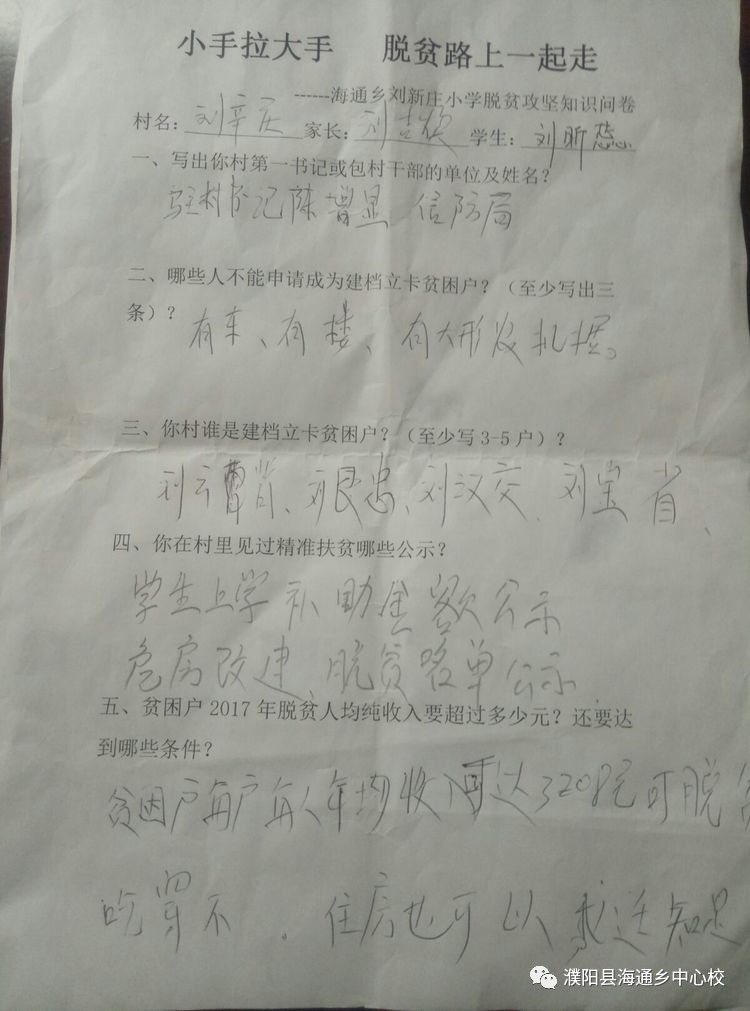 小手拉大手 脱贫路上一起走
------海通乡刘新庄小学脱贫攻坚知识问卷
村名：刘辛庄 家长：刘 学生：刘昕蕊
一、写出你村第一书记或包村干部的单位及姓名？
驻村书记陈增显 信防局
二、哪些人不能申请成为建档立卡贫困户？（至少写出三
条）？
有车、有楼、有大形农机据。
三、你村谁是建档立卡贫困户？（至少写 3-5 户）？
刘 、刘艮忠、刘汉交、刘宝省、
四、你在村里见过精准扶贫哪些公示？
学生上学补助金额公示
危房改建、脱贫名单公示
五、贫困户 2017 年脱贫人均纯收入要超过多少元？还要达
到哪些条件？
贫困户每户每人年均收入 达3208元可脱贫
吃穿不 。住房也可以 知足
濮阳县海通乡中心校